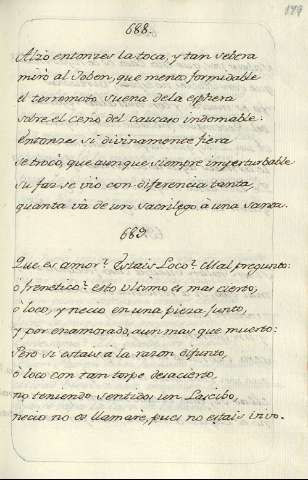 688.
199
Alzò entonzes la toca, y tan sebera
miró al Joben, que menos formidable
el terromoto suena dela esphera
sobre el ceño del caucaso indomable.
Entonzes si divinamente fiera
se trocò, que aunque siempre imperturbable
su faz se viò con diferencia tanta,
quanta và de un sacrilego à una santa.
689.
Que es amor? Estais Loco? Mal pregunto:
ò frenetico? esto ultimo es mas cierto,
ò loco, y necio en una pieza junto,
y por enamorado, aun mas que muerto:
Pero si estais a la razon difunto,
ò loco con tan torpe desacierto,
no teniendo sentidos un Lascibo,
necio no os llamare, pues no estais vivo.